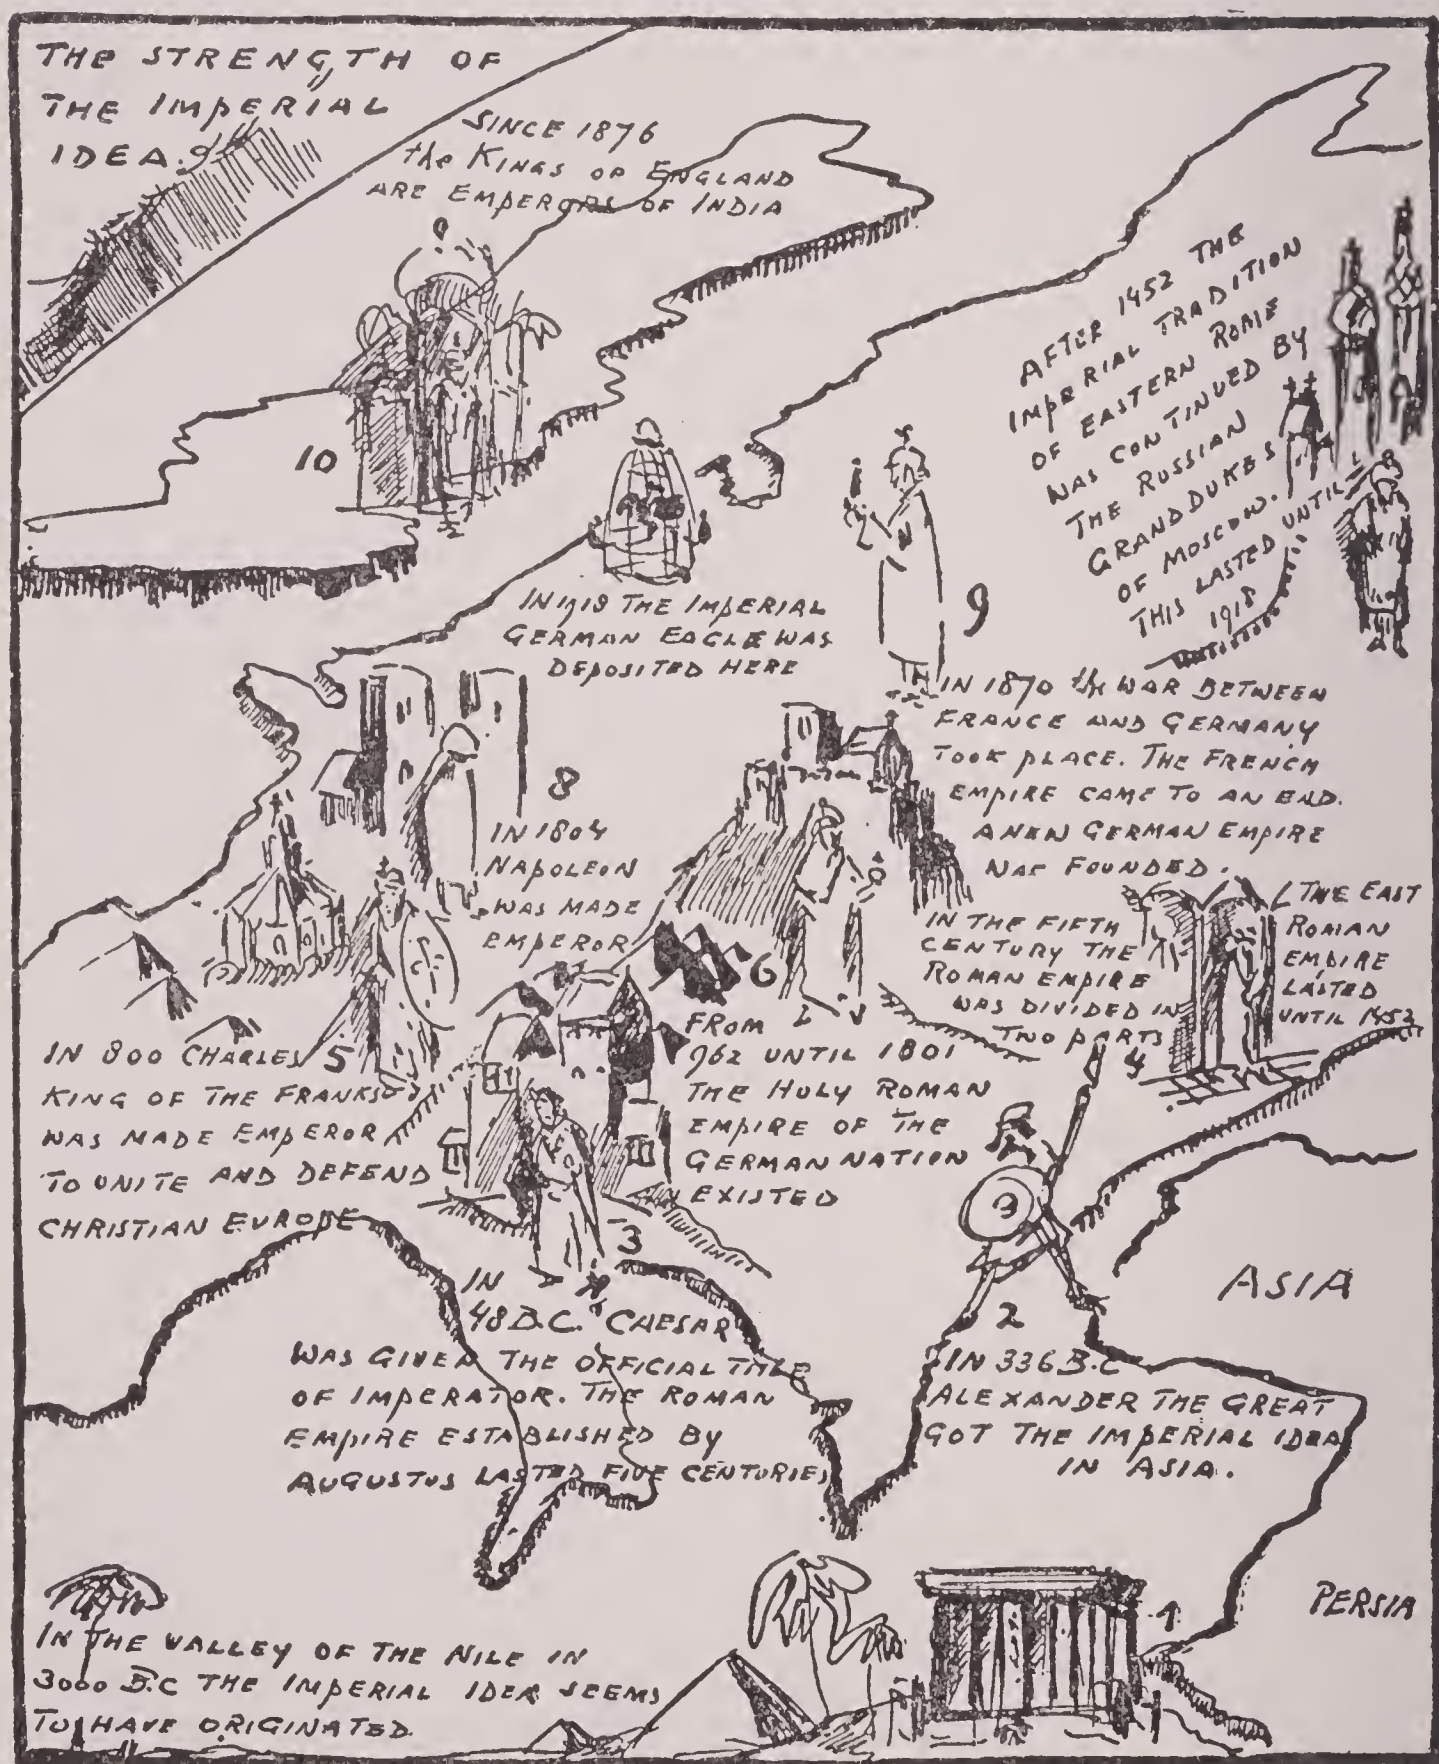 THE STRENGTH OF
THE IMPERIAL
IDEA.
SINCE 1876
the KINGS OF ENGLAND
ARE EMPERORS OF INDIA
10
AFTER 1452 THE
IMPERIAL TRADITION
OF EASTERN ROME
WAS CONTINUED BY
THE RUSSIAN
GRANDDUKES
OF MOSCOW.
THIS LASTED UNTIL
1918
IN 1918 THE IMPERIAL
GERMAN EAGLE WAS
DEPOSITED HERE
9
IN 1870 the WAR BETWEEN
FRANCE AND GERMANY
TOOK PLACE. THE FRENCH
EMPIRE CAME TO AN END.
A NEW GERMAN EMPIRE
WAS FOUNDED.
8
IN 1804
NAPOLEON
WAS MADE
EMPEROR
IN THE FIFTH
CENTURY THE
ROMAN EMPIRE
WAS DIVIDED IN
TWO PARTS
4
THE EAST
ROMAN
EMPIRE
LASTED
UNTIL 1452
6
FROM
962 UNTIL 1801
THE HOLY ROMAN
EMPIRE OF THE
GERMAN NATION
EXISTED
5
IN 800 CHARLES
KING OF THE FRANKS
WAS MADE EMPEROR
TO UNITE AND DEFEND
CHRISTIAN EUROPE
3
IN
48 B.C. CAESAR
WAS GIVEN THE OFFICIAL TITLE
OF IMPERATOR. THE ROMAN
EMPIRE ESTABLISHED BY
AUGUSTUS LASTED FIVE CENTURIES
ASIA
2
IN 336 B.C
ALEXANDER THE GREAT
GOT THE IMPERIAL IDEA
IN ASIA.
PERSIA
1
IN THE VALLEY OF THE NILE IN
3000 B.C THE IMPERIAL IDEA SEEMS
TO HAVE ORIGINATED.